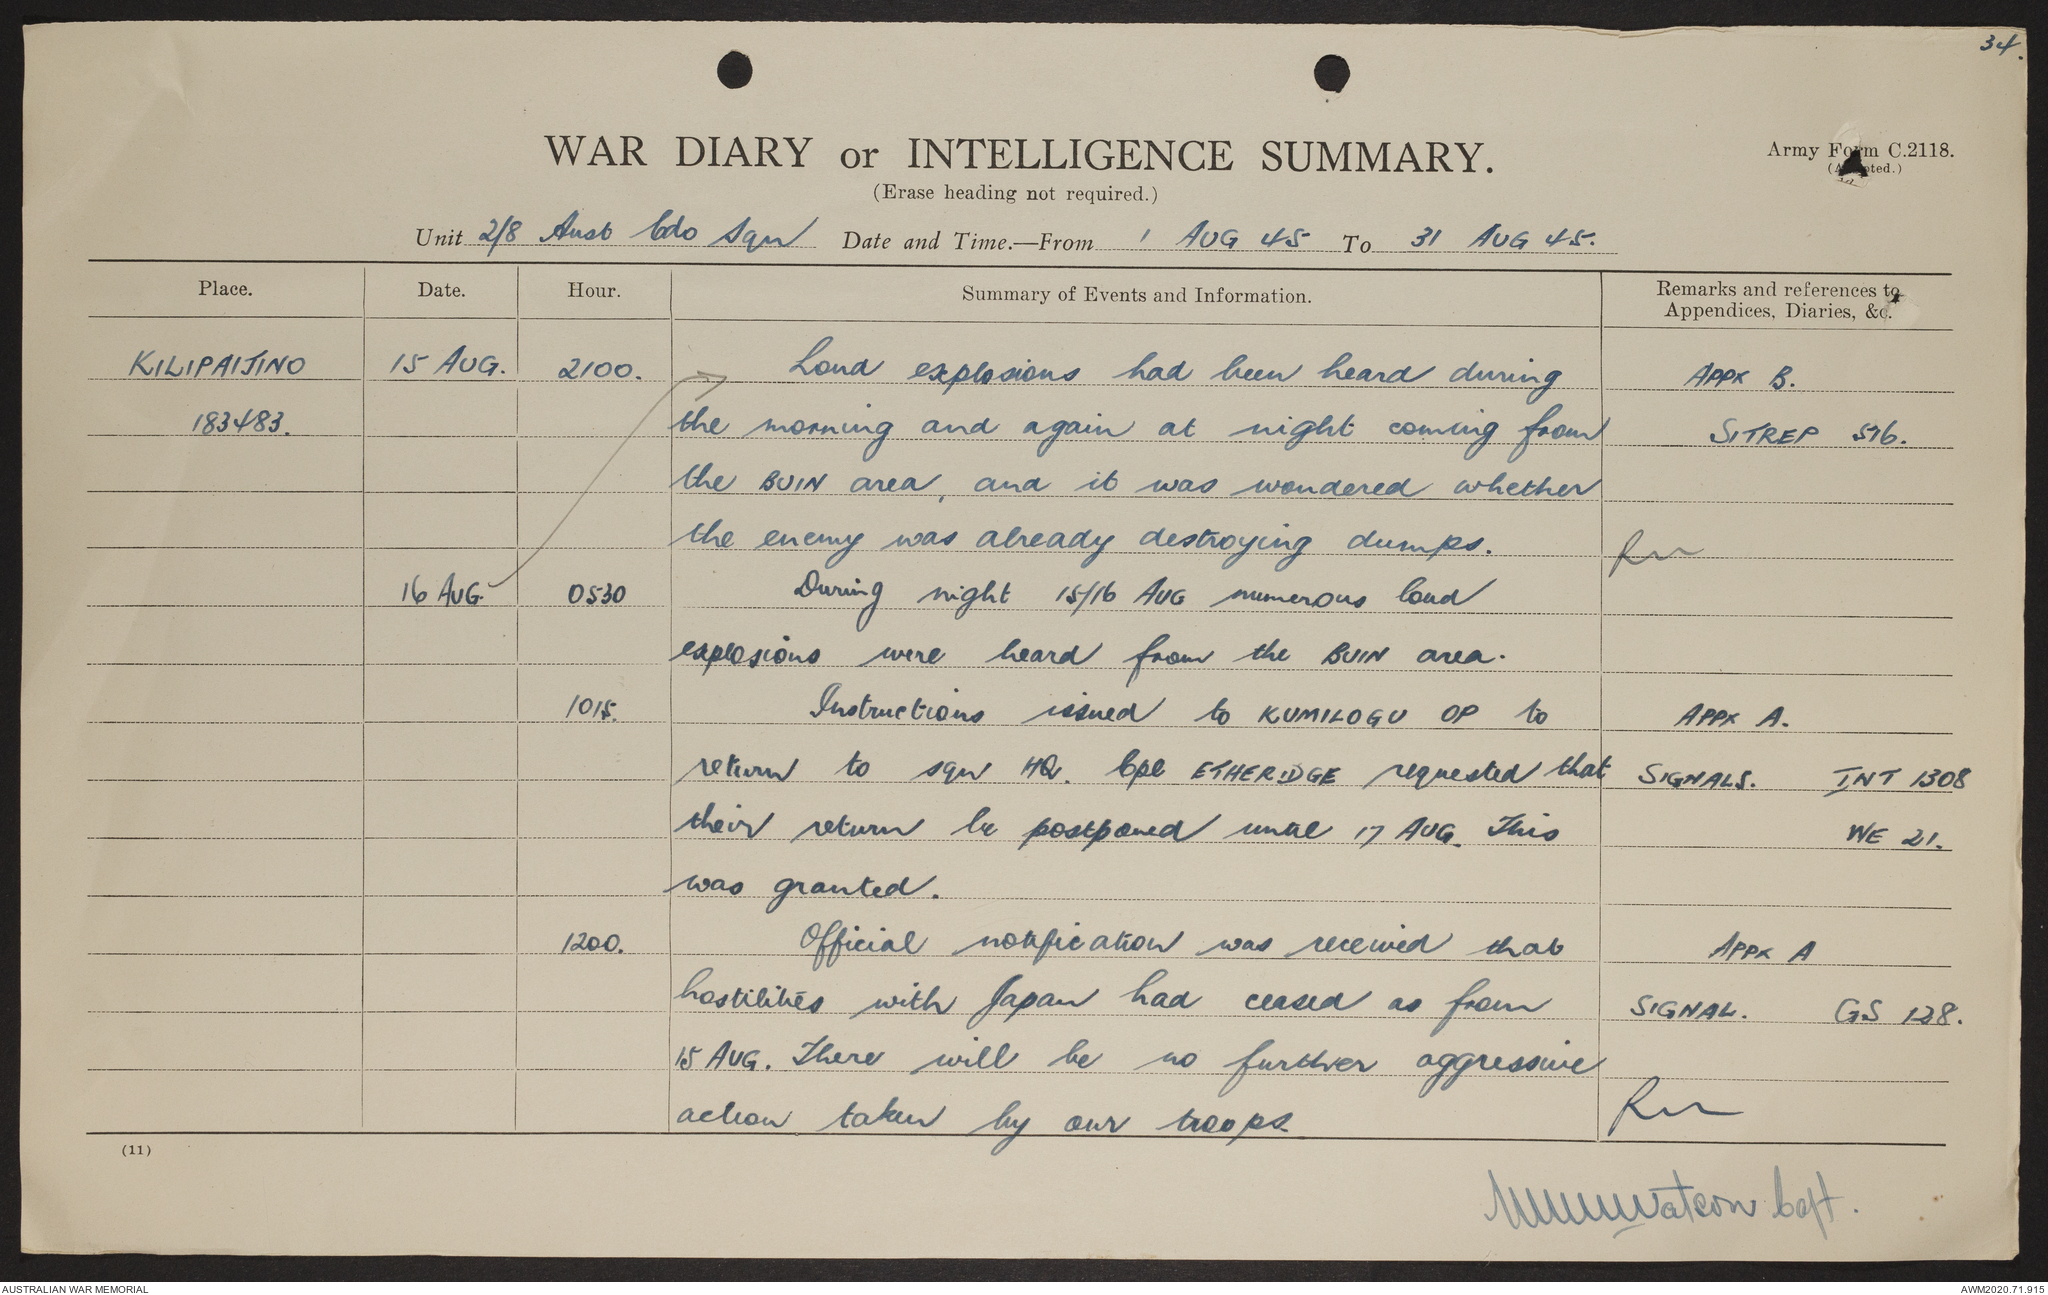 34.
WAR DIARY or INTELLIGENCE SUMMARY.
Army Form C.2118.
(Erase heading not required.)
Unit 2/8 Aust Cdo Sqn Date and Time.—From 1 AUG 45 To 31 AUG 45.
Place. Date. Hour. Summary of Events and Information. Remarks and references to
Appendices, Diaries, &c.
KILIPAIJINO 15 AUG. 2100. Loud explosions had been heard during APPX B.
183483. the morning and again at night coming from SITREP 516.
the BUIN area, and it was wondered whether
the enemy was already destroying dumps.
16 AUG. 0530 During night 15/16 AUG numerous loud
explosions were heard from the BUIN area.
1015. Instructions issued to KUMILOGU OP to APPX A.
return to sqn HQ. Cpl ETHERIDGE requested that SIGNALS. INT 1308
their return be postponed until 17 AUG. This WE 21.
was granted.
1200. Official notification was received that APPX A
hostilities with Japan had ceased as from SIGNAL. GS 128.
15 AUG. There will be no further aggressive
action taken by our troops.
(11)
Watson Capt.
AUSTRALIAN WAR MEMORIAL AWM2020.71.915